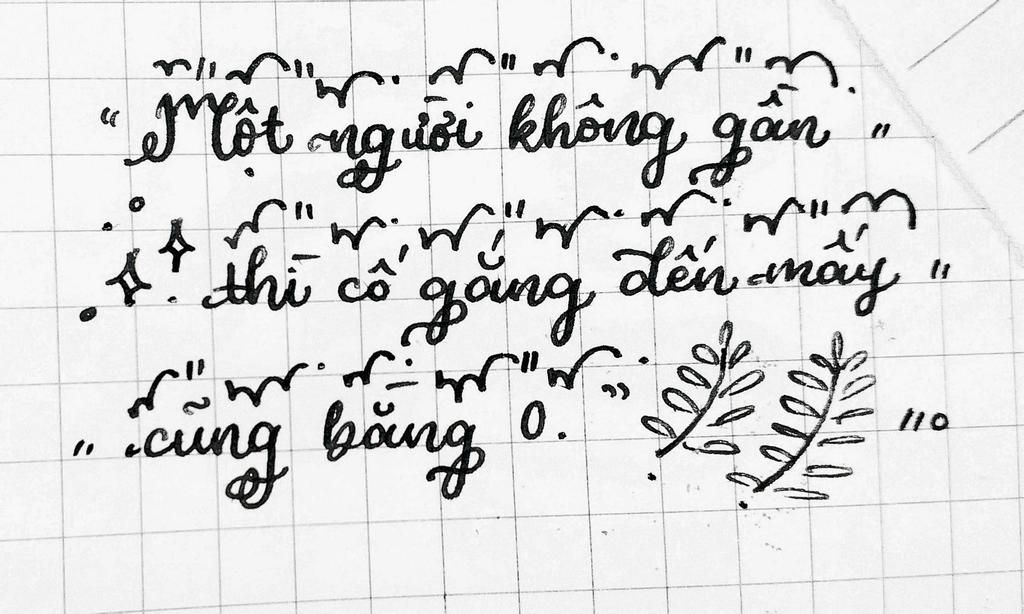 "Một người không gần
thì cố gắng đến mấy
cũng bằng 0."